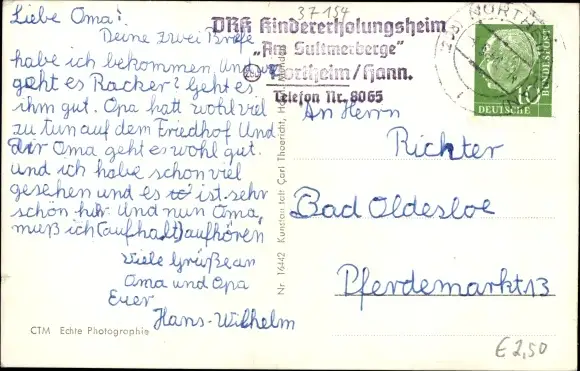 Liebe Oma!
Deine zwei Briefe
habe ich bekommen und wie
geht es Racker? Geht es
ihm gut. Opa hatt wohl viel
zu tun auf dem Friedhof Und
dir Oma geht es wohl gut.
und ich habe schon viel
gesehen und es ist sehr
schön hir. Und nun Oma,
muß ich (aufhalt) aufhören
Viele Grüße an
Oma und Opa
Euer
Hans-Wilhelm
CTM Echte Photographie
Nr. 16442 Kunstanstalt Carl Thoericht,
37154
DRK Kindererholungsheim
„Am Sultmerberge"
Northeim/Hann.
Telefon Nr. 8065
NORTHEIM
DEUTSCHE
BUNDESPOST
10
An Herrn
Richter
Bad Oldesloe
Pferdemarkt 13
€ 2,50